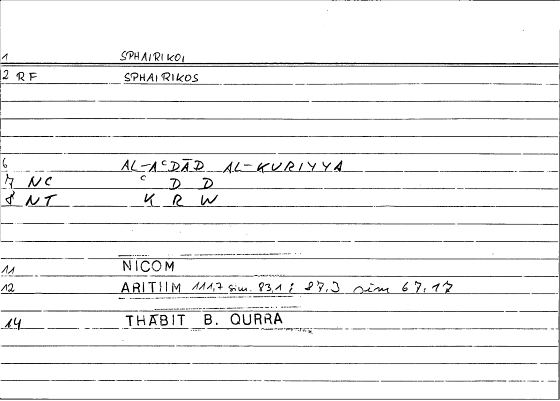 1 SPHAIRIKOI
2 RF SPHAIRIKOS
6 AL-AʿDĀD AL-KURIYYA
7 NC ʿ D D
8 NT K R W
11 NICOM
12 ARITHM 111,7 sim. 83,1 ; 87,3 sim 67,17
14 THĀBIT B. QURRA